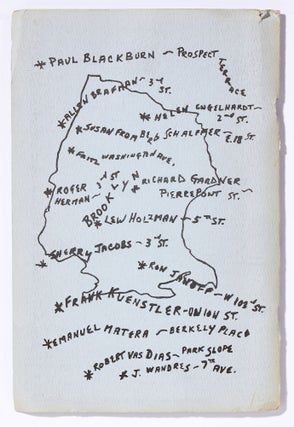 * PAUL BLACKBURN ~ PROSPECT TERRACE
* ALLEN BRAFMAN ~ 3rd ST.
* HELEN ENGELHARDT ~ 2nd ST.
* SUSAN FROMBERG SCHAEFFER E.18 ST.
* FRITZ WASHINGTON AVE.
* ROGER HERMAN ~ 3rd ST
* RICHARD GARDNER PIERREPONT ST. ~
BROOKLYN
* LEW HOLZMAN ~ 5th ST.
* SHERRY JACOBS ~ 3rd ST.
* RON JANOFF ~ W 102nd ST.
* FRANK KUENSTLER - UNION ST.
* EMANUEL MATERA ~ BERKELY PLACE
* ROBERT VAS DIAS ~ PARK SLOPE
* J. WANDRES ~ 7th AVE.